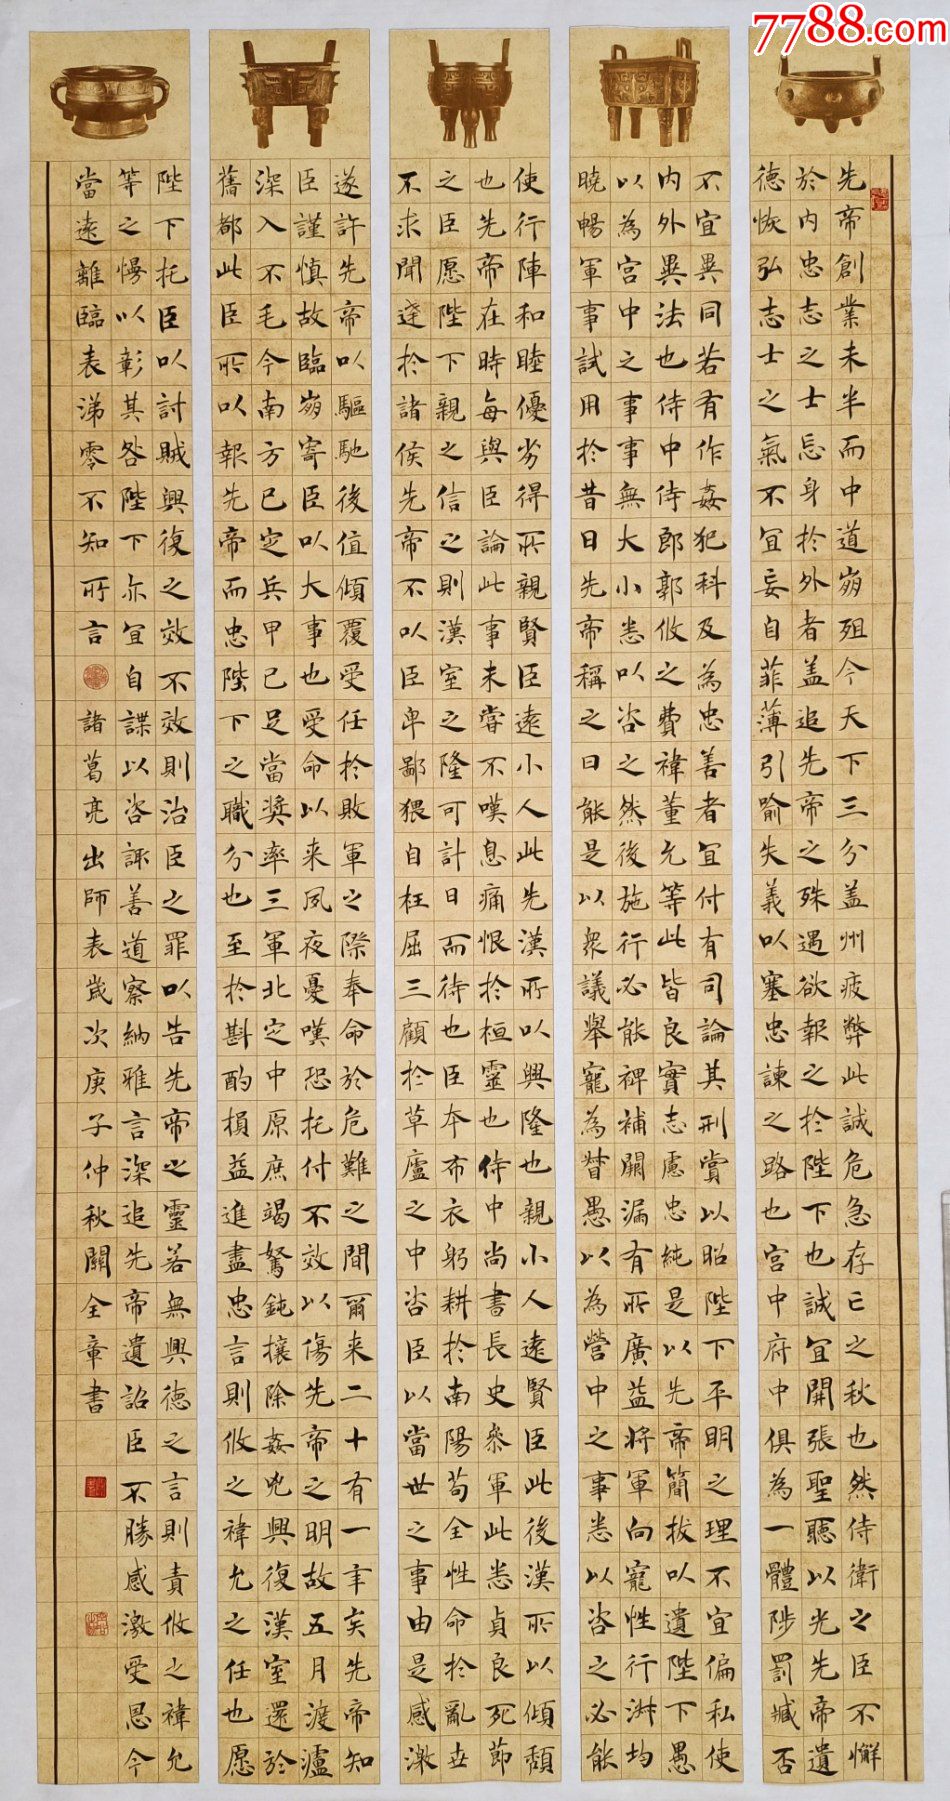 7788.com
先帝創業未半而中道崩殂今天下三分盖州疲弊此誠危急存亡之秋也然侍衛之臣不懈
於內忠志之士忘身於外者盖追先帝之殊遇欲報之於陛下也誠宜開張聖聽以光先帝遺
德恢弘志士之氣不宜妄自菲薄引喻失義以塞忠諫之路也宮中府中俱為一體陟罰臧否
不宜異同若有作姦犯科及為忠善者宜付有司論其刑賞以昭陛下平明之理不宜偏私使
內外異法也侍中侍郎郭攸之費禕董允等此皆良實志慮忠純是以先帝簡拔以遺陛下愚
以為宮中之事事無大小悉以咨之然後施行必能裨補闕漏有所廣益將軍向寵性行淑均
曉暢軍事試用於昔日先帝稱之曰能是以衆議舉寵為督愚以為營中之事悉以咨之必能
使行陣和睦優劣得所親賢臣遠小人此先漢所以興隆也親小人遠賢臣此後漢所以傾頹
也先帝在時每與臣論此事未嘗不嘆息痛恨於桓靈也侍中尚書長史參軍此悉貞良死節
之臣愿陛下親之信之則漢室之隆可計日而待也臣本布衣躬耕於南陽苟全性命於亂世
不求聞達於諸侯先帝不以臣卑鄙猥自枉屈三顧於草廬之中咨臣以當世之事由是感激
遂許先帝以驅馳後值傾覆受任於敗軍之際奉命於危難之間爾来二十有一年矣先帝知
臣謹慎故臨崩寄臣以大事也受命以来夙夜憂嘆恐托付不效以傷先帝之明故五月渡瀘
深入不毛今南方已定兵甲已足當獎率三軍北定中原庶竭駑鈍攘除姦兇興復漢室還於
舊都此臣所以報先帝而忠陛下之職分也至於斟酌損益進盡忠言則攸之禕允之任也愿
陛下托臣以討賊興復之效不效則治臣之罪以告先帝之靈若無興德之言則責攸之禕允
等之慢以彰其咎陛下亦宜自謀以咨諏善道察納雅言深追先帝遺詔臣不勝感激受恩今
當遠離臨表涕零不知所言諸葛亮出師表歲次庚子仲秋關全章書